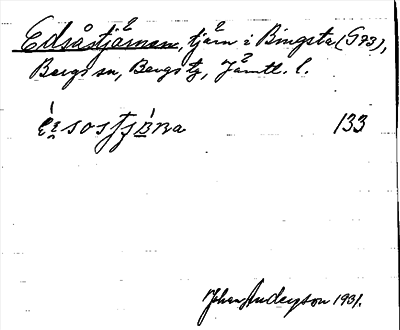 Edsåstjärnen, tjärn i Bingsta (G93),
Bergs sn, Bergs tg, Jämtl. l.
133
Johan Anderson 1931.